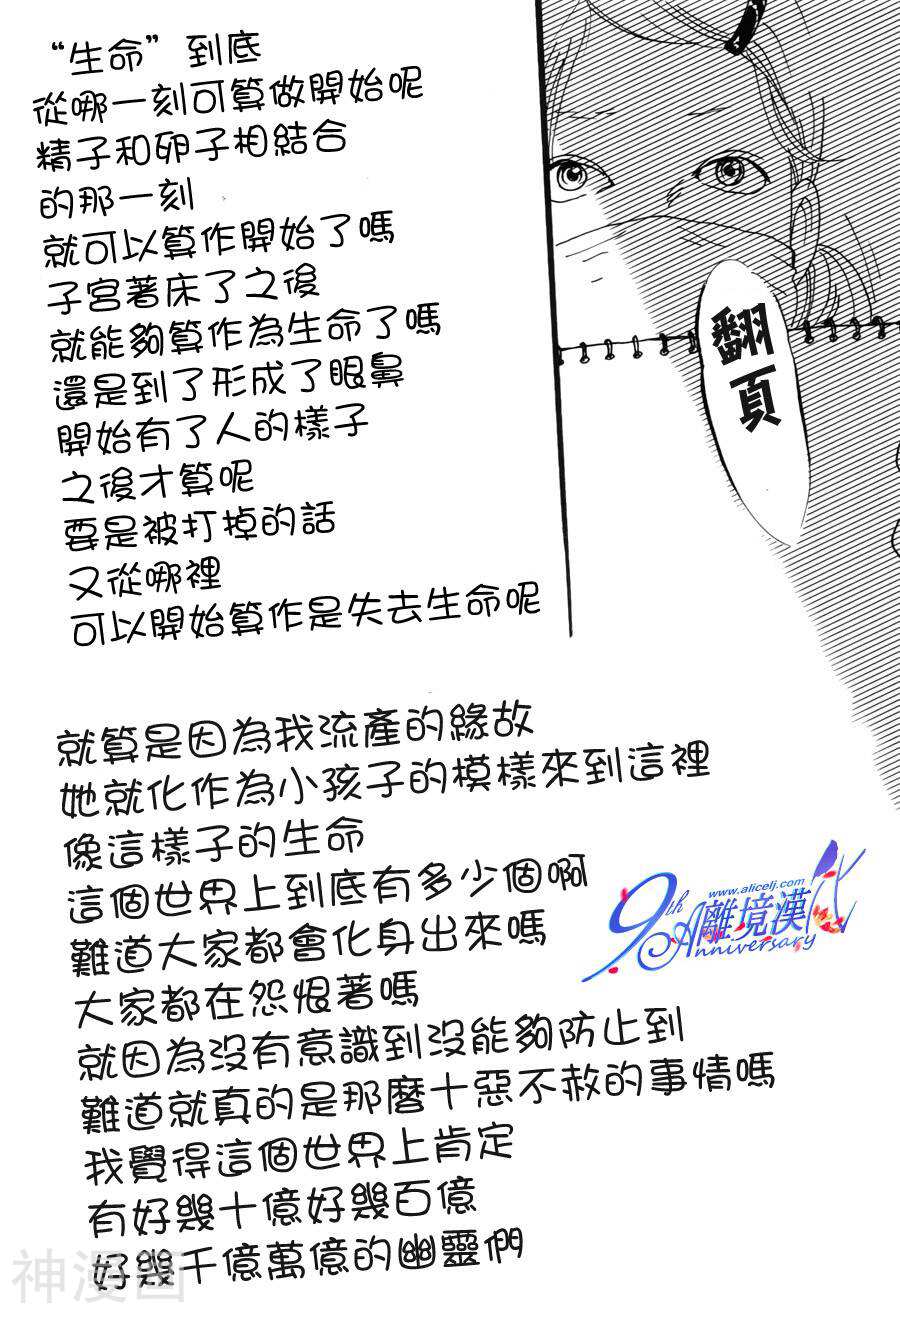 “生命”到底
從哪一刻可算做開始呢
精子和卵子相結合
的那一刻
就可以算作開始了嗎
子宮著床了之後
就能夠算作為生命了嗎
還是到了形成了眼鼻
開始有了人的樣子
之後才算呢
要是被打掉的話
又從哪裡
可以開始算作是失去生命呢
翻頁
就算是因為我流產的緣故
她就化作為小孩子的模樣來到這裡
像這樣子的生命
這個世界上到底有多少個啊
難道大家都會化身出來嗎
大家都在怨恨著嗎
就因為沒有意識到沒能夠防止到
難道就真的是那麼十惡不赦的事情嗎
我覺得這個世界上肯定
有好幾十億好幾百億
好幾千億萬億的幽靈們
9th
www.alicelj.com
離境漢化
Anniversary
神漫画